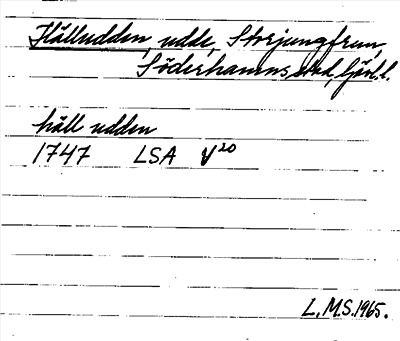 Hälludden, udde, Storjungfrun,
Söderhamns stad, Gävl.l.
häll udden
1747 LSA V20
L.M.S.1965.